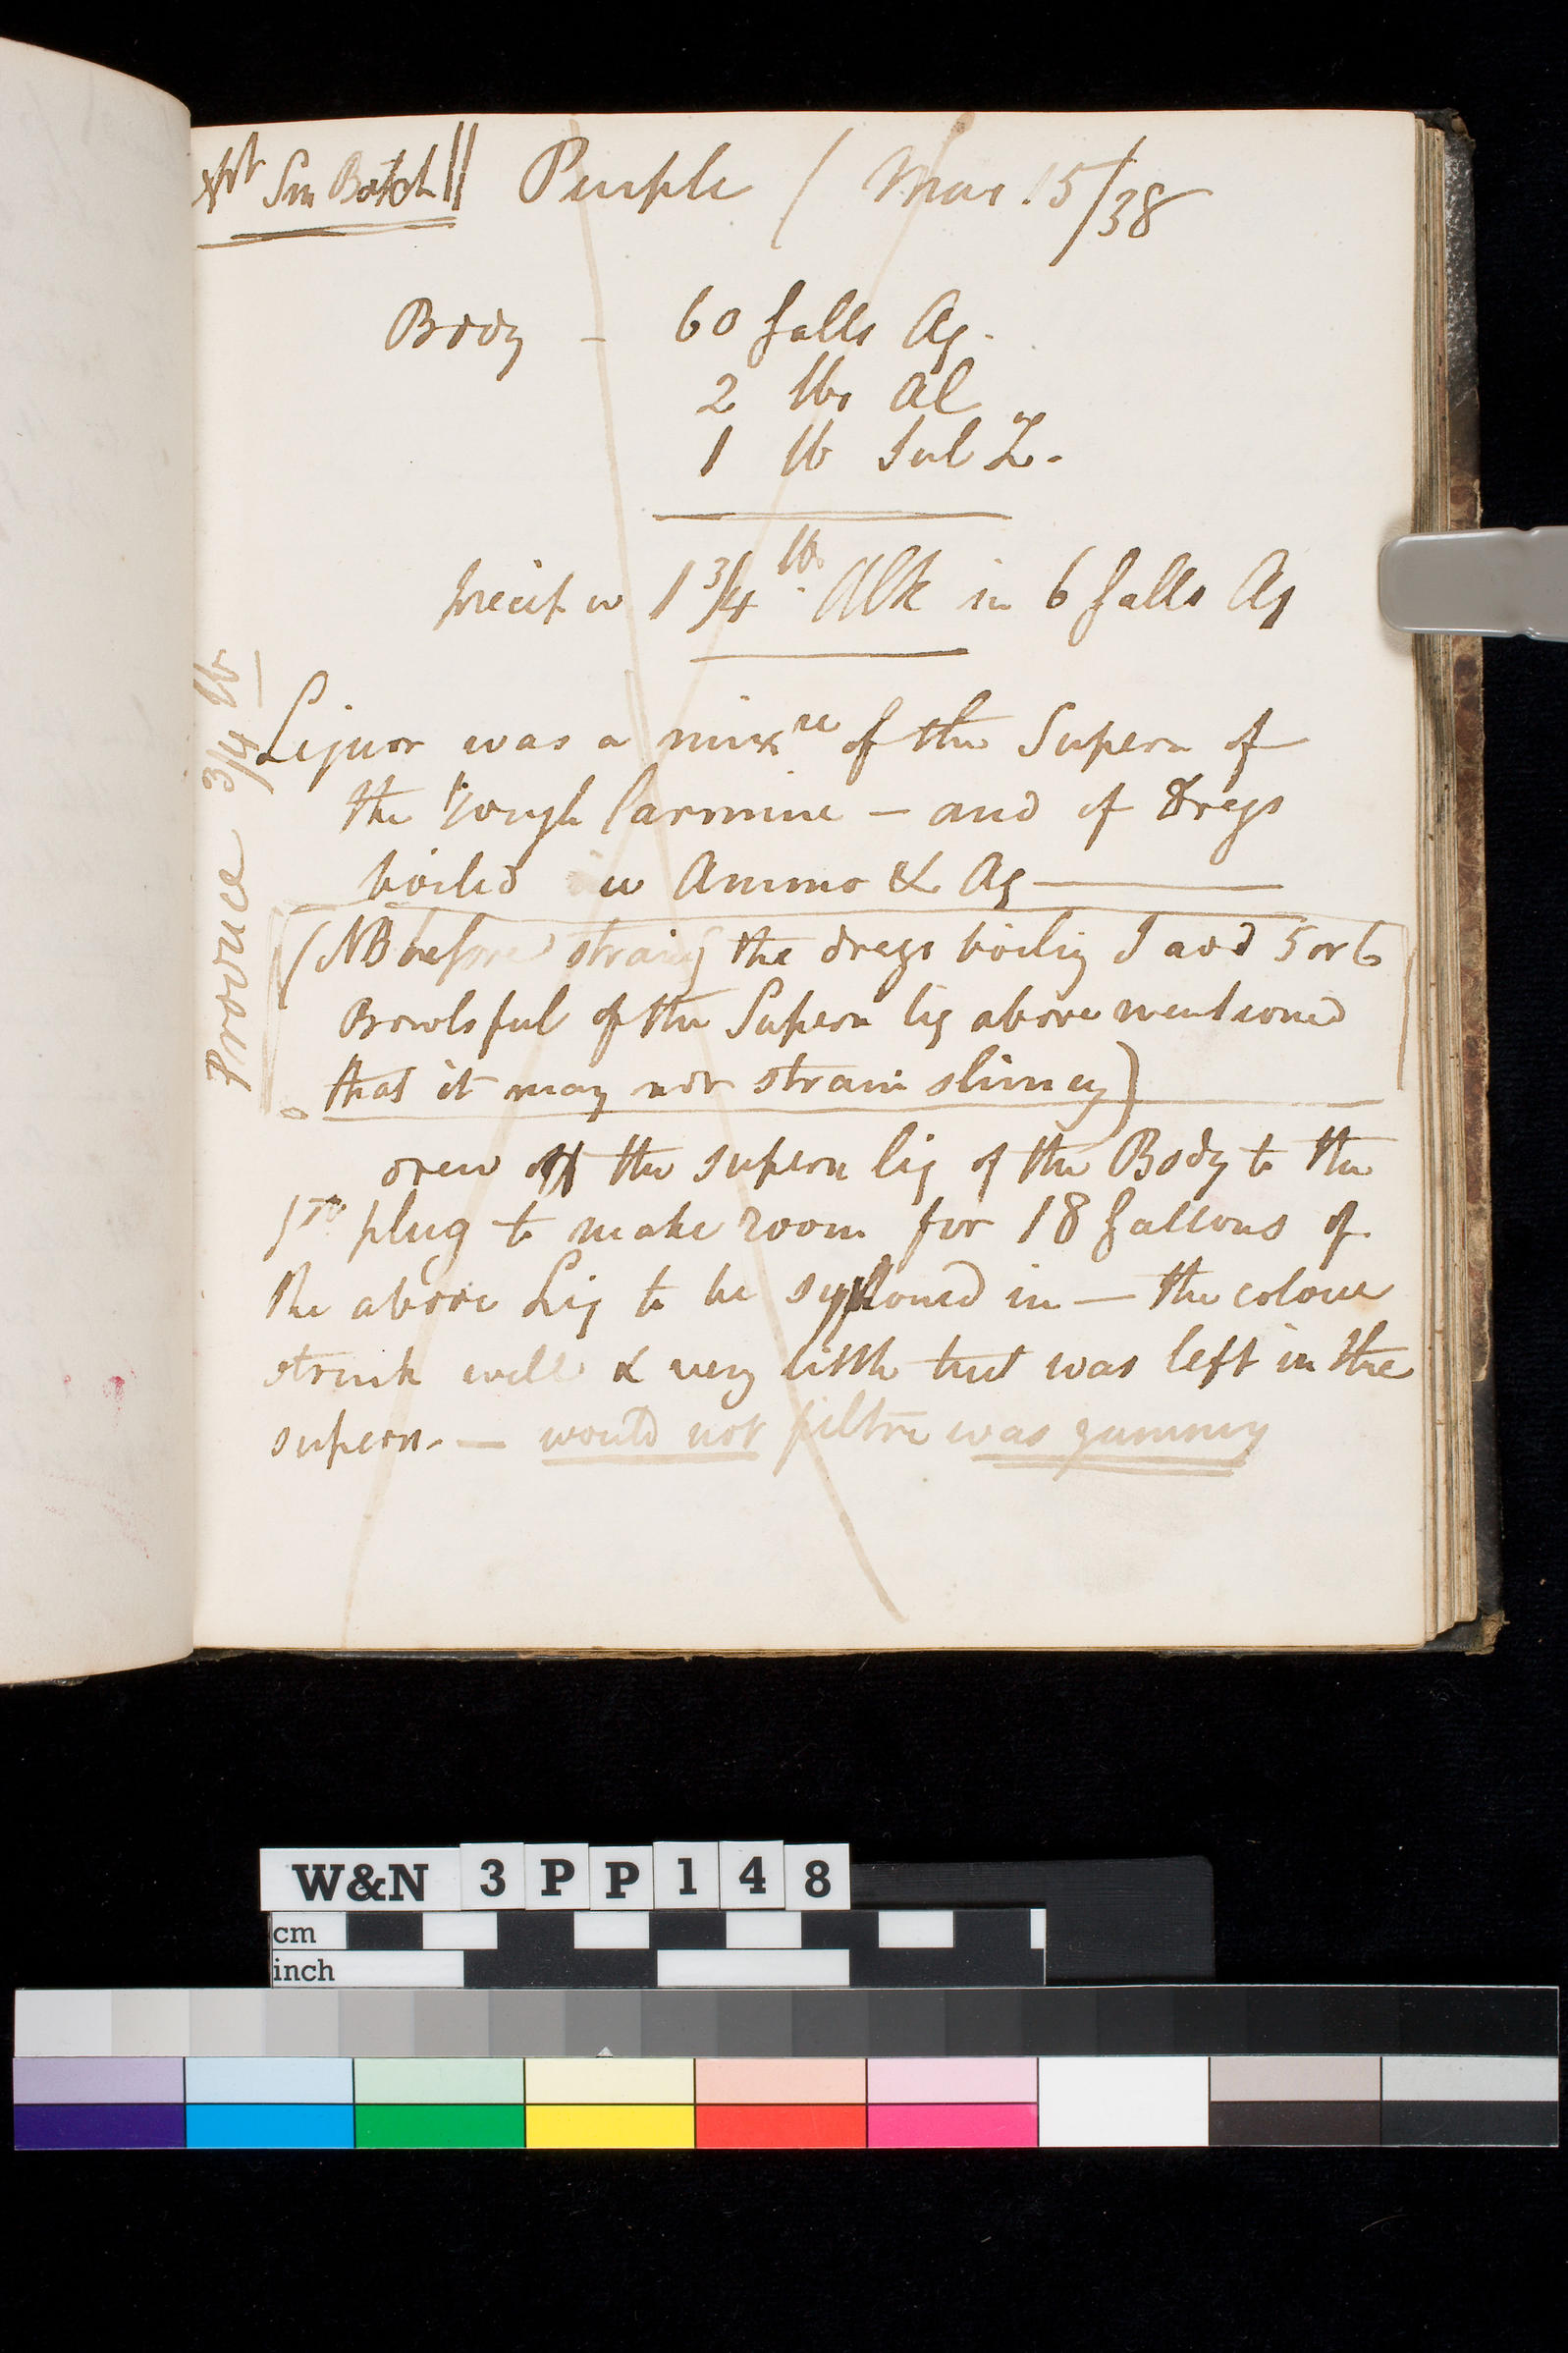 Sm Batch || Purple / Mar 15/38
Body - 60 Galls Aq.
2 lbs Al
1 lb Sul Z.
precip w 1 3/4 lbs. Alk in 6 Galls Aq
Produce 3/4 lb
Liquor was a mixre of the Supern of
the Rough Carmine — and of Dregs
boiled w Ammo & Aq —
(NB before straing the dregs boilig I add 5 or 6
Bowlsful of the Supern liq above mentioned
that it may not strain slimey)
drew off the supern liq of the Body to the
1st plug to make room for 18 Gallons of
the above Liq to be syphoned in — the colour
struck well & very little tint was left in the
supern. — would not filtre was gummy
W&N 3PP148
cm
inch